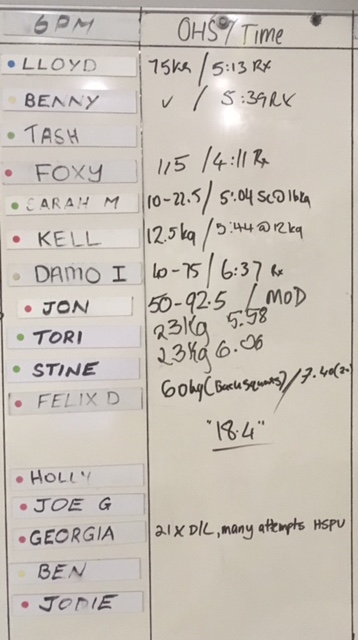 6PM OHS / Time
LLOYD 75kg / 5:13 Rx
BENNY ✓ / 5:39 RX
TASH
FOXY 115 / 4:11 Rx
SARAH M 10-22.5 / 5:04 Sc@16kg
KELL 12.5kg / 5:44 @ 12kg
DAMO I 40-75 / 6:37 Rx
JON 50-92.5 / MOD
5.58
TORI 23kg
STINE 23kg 6.06
FELIX D 60kg (Back Squats) / 7.40
"18.4"
HOLLY
JOE G
GEORGIA 21 X D/L, many attempts HSPU
BEN
JODIE